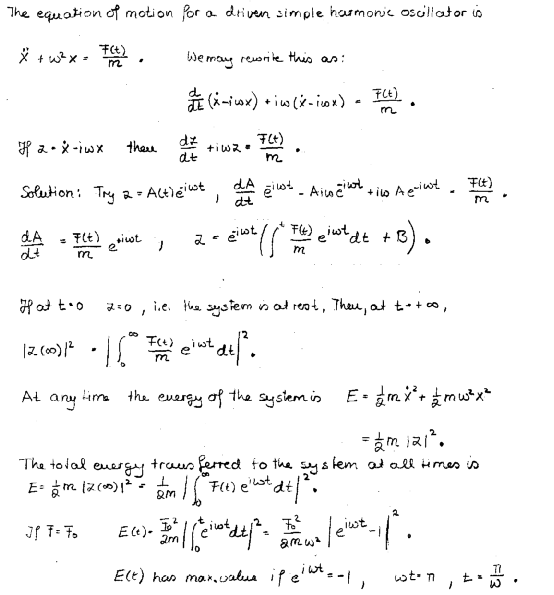 The equation of motion for a driven simple harmonic oscillator is
ẍ + ω²x = F(t)/m . We may rewrite this as:
d/dt (ẋ-iωx) + iω (ẋ-iωx) = F(t)/m .
If z = ẋ-iωx then dz/dt + iωz = F(t)/m .
Solution: Try z = A(t)e^{-iωt} , dA/dt e^{-iωt} - Aiωe^{-iωt} + iω Ae^{-iωt} = F(t)/m .
dA/dt = F(t)/m e^{+iωt} , z = e^{-iωt} ( ∫^t F(t)/m e^{iωt} dt + B ) .
If at t=0 z=0 , i.e. the system is at rest, Then, at t=+∞,
|z(∞)|² = | ∫_0^∞ F(t)/m e^{iωt} dt |² .
At any time the energy of the system is E = ½mẋ² + ½mω²x²
= ½m |z|² .
The total energy transferred to the system at all times is
E = ½m |z(∞)|² = 1/2m | ∫_0^∞ F(t) e^{iωt} dt |² .
If F = F₀ E(t) = F₀²/2m | ∫_0^t e^{iωt} dt |² = F₀²/2mω² | e^{iωt} -1 |² .
E(t) has max. value if e^{iωt} = -1 , ωt = π , t = π/ω .